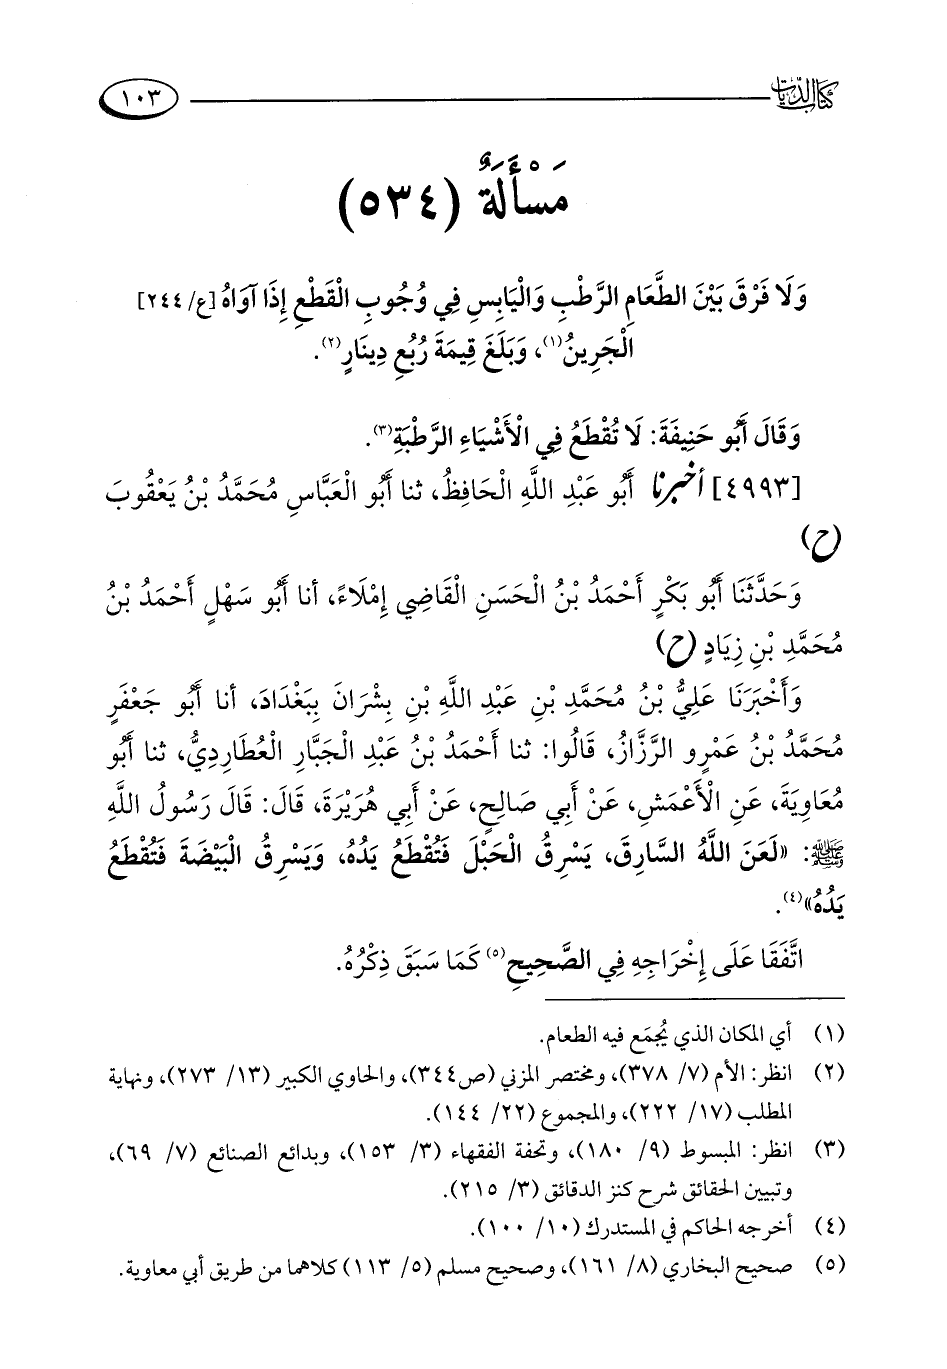 كتاب الديات
١٠٣
مَسْأَلَةٌ (٥٣٤)
وَلَا فَرْقَ بَيْنَ الطَّعَامِ الرَّطْبِ وَالْيَابِسِ فِي وُجُوبِ الْقَطْعِ إِذَا آوَاهُ [ع/ ٢٤٤]
الْجَرِينُ(١)، وَبَلَغَ قِيمَةَ رُبُعِ دِينَارٍ(٢).
وَقَالَ أَبُو حَنِيفَةَ: لَا تُقْطَعُ فِي الْأَشْيَاءِ الرَّطْبَةِ(٣).
[٤٩٩٣] أخبرنا أَبُو عَبْدِ اللَّهِ الْحَافِظُ، ثنا أَبُو الْعَبَّاسِ مُحَمَّدُ بْنُ يَعْقُوبَ
(ح)
وَحَدَّثَنَا أَبُو بَكْرٍ أَحْمَدُ بْنُ الْحَسَنِ الْقَاضِي إِمْلَاءً، أنا أَبُو سَهْلٍ أَحْمَدُ بْنُ
مُحَمَّدِ بْنِ زِيَادٍ (ح)
وَأَخْبَرَنَا عَلِيُّ بْنُ مُحَمَّدِ بْنِ عَبْدِ اللَّهِ بْنِ بِشْرَانَ بِبَغْدَادَ، أنا أَبُو جَعْفَرٍ
مُحَمَّدُ بْنُ عَمْرٍو الرَّزَّازُ، قَالُوا: ثنا أَحْمَدُ بْنُ عَبْدِ الْجَبَّارِ الْعُطَارِدِيُّ، ثنا أَبُو
مُعَاوِيَةَ، عَنِ الْأَعْمَشِ، عَنْ أَبِي صَالِحٍ، عَنْ أَبِي هُرَيْرَةَ، قَالَ: قَالَ رَسُولُ اللَّهِ
ﷺ: «لَعَنَ اللَّهُ السَّارِقَ، يَسْرِقُ الْحَبْلَ فَتُقْطَعُ يَدُهُ، وَيَسْرِقُ الْبَيْضَةَ فَتُقْطَعُ
يَدُهُ»(٤).
اتَّفَقَا عَلَى إِخْرَاجِهِ فِي الصَّحِيحِ(٥) كَمَا سَبَقَ ذِكْرُهُ.
(١) أي المكان الذي يُجمَع فيه الطعام.
(٢) انظر: الأم (٧/ ٣٧٨)، ومختصر المزني (ص٣٤٤)، والحاوي الكبير (١٣/ ٢٧٣)، ونهاية
المطلب (١٧/ ٢٢٢)، والمجموع (٢٢/ ١٤٤).
(٣) انظر: المبسوط (٩/ ١٨٠)، وتحفة الفقهاء (٣/ ١٥٣)، وبدائع الصنائع (٧/ ٦٩)،
وتبيين الحقائق شرح كنز الدقائق (٣/ ٢١٥).
(٤) أخرجه الحاكم في المستدرك (١٠/ ١٠٠).
(٥) صحيح البخاري (٨/ ١٦١)، وصحيح مسلم (٥/ ١١٣) كلاهما من طريق أبي معاوية.